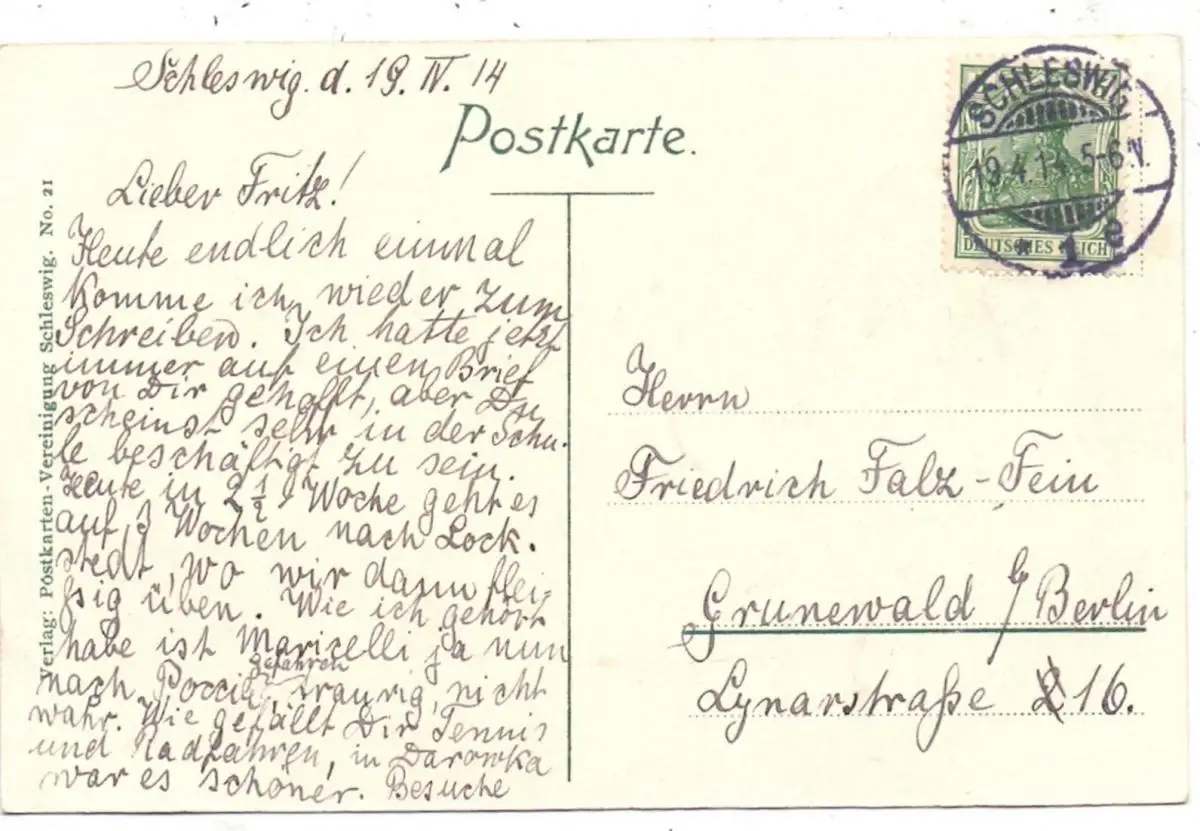 Schleswig. d. 19. IV. 14
Postkarte.
Lieber Fritz!
Heute endlich einmal
komme ich wieder zum
Schreiben. Ich hatte jetzt
immer auf einen Brief
von Dir gehofft, aber Du
scheinst sehr in der Schu-
le beschäftigt zu sein.
Heute in 2 1/2 Woche geht es
auf 3 Wochen nach Lock.
stedt, wo wir dann flei-
ßig üben. Wie ich gehört
habe ist ja nun
gefahren
nach traurig, nicht
wahr. Wie gefällt Dir Tennis
und Radfahren, in Darowka
war es schöner. Besuche
Verlag: Postkarten-Vereinigung Schleswig. No. 21
SCHLESWIG
19.4.14. 5-6 N.
* 1 e
DEUTSCHES REICH
Herrn
Friedrich Falz-Fein
Grunewald b/Berlin
Lynarstraße 16.